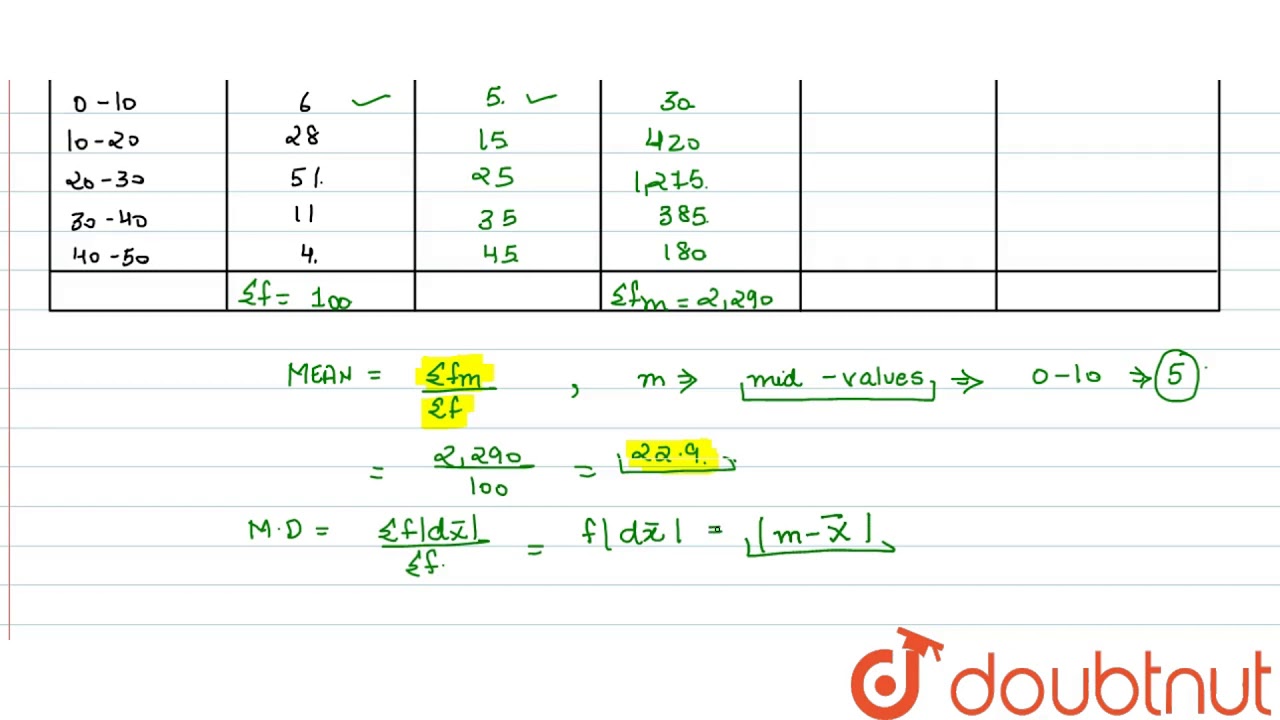 0-10 6 5. 30
10-20 28 15 420
20-30 51. 25 1,275.
30-40 11 35 385
40-50 4. 45 180
Σf = 100 Σfm = 2,290
MEAN = Σfm / Σf , m ⇒ mid-values ⇒ 0-10 ⇒ 5
= 2,290 / 100 = 22.9.
M.D = Σf|dx̄| / Σf. = f|dx̄| = |m-x̄|
doubtnut